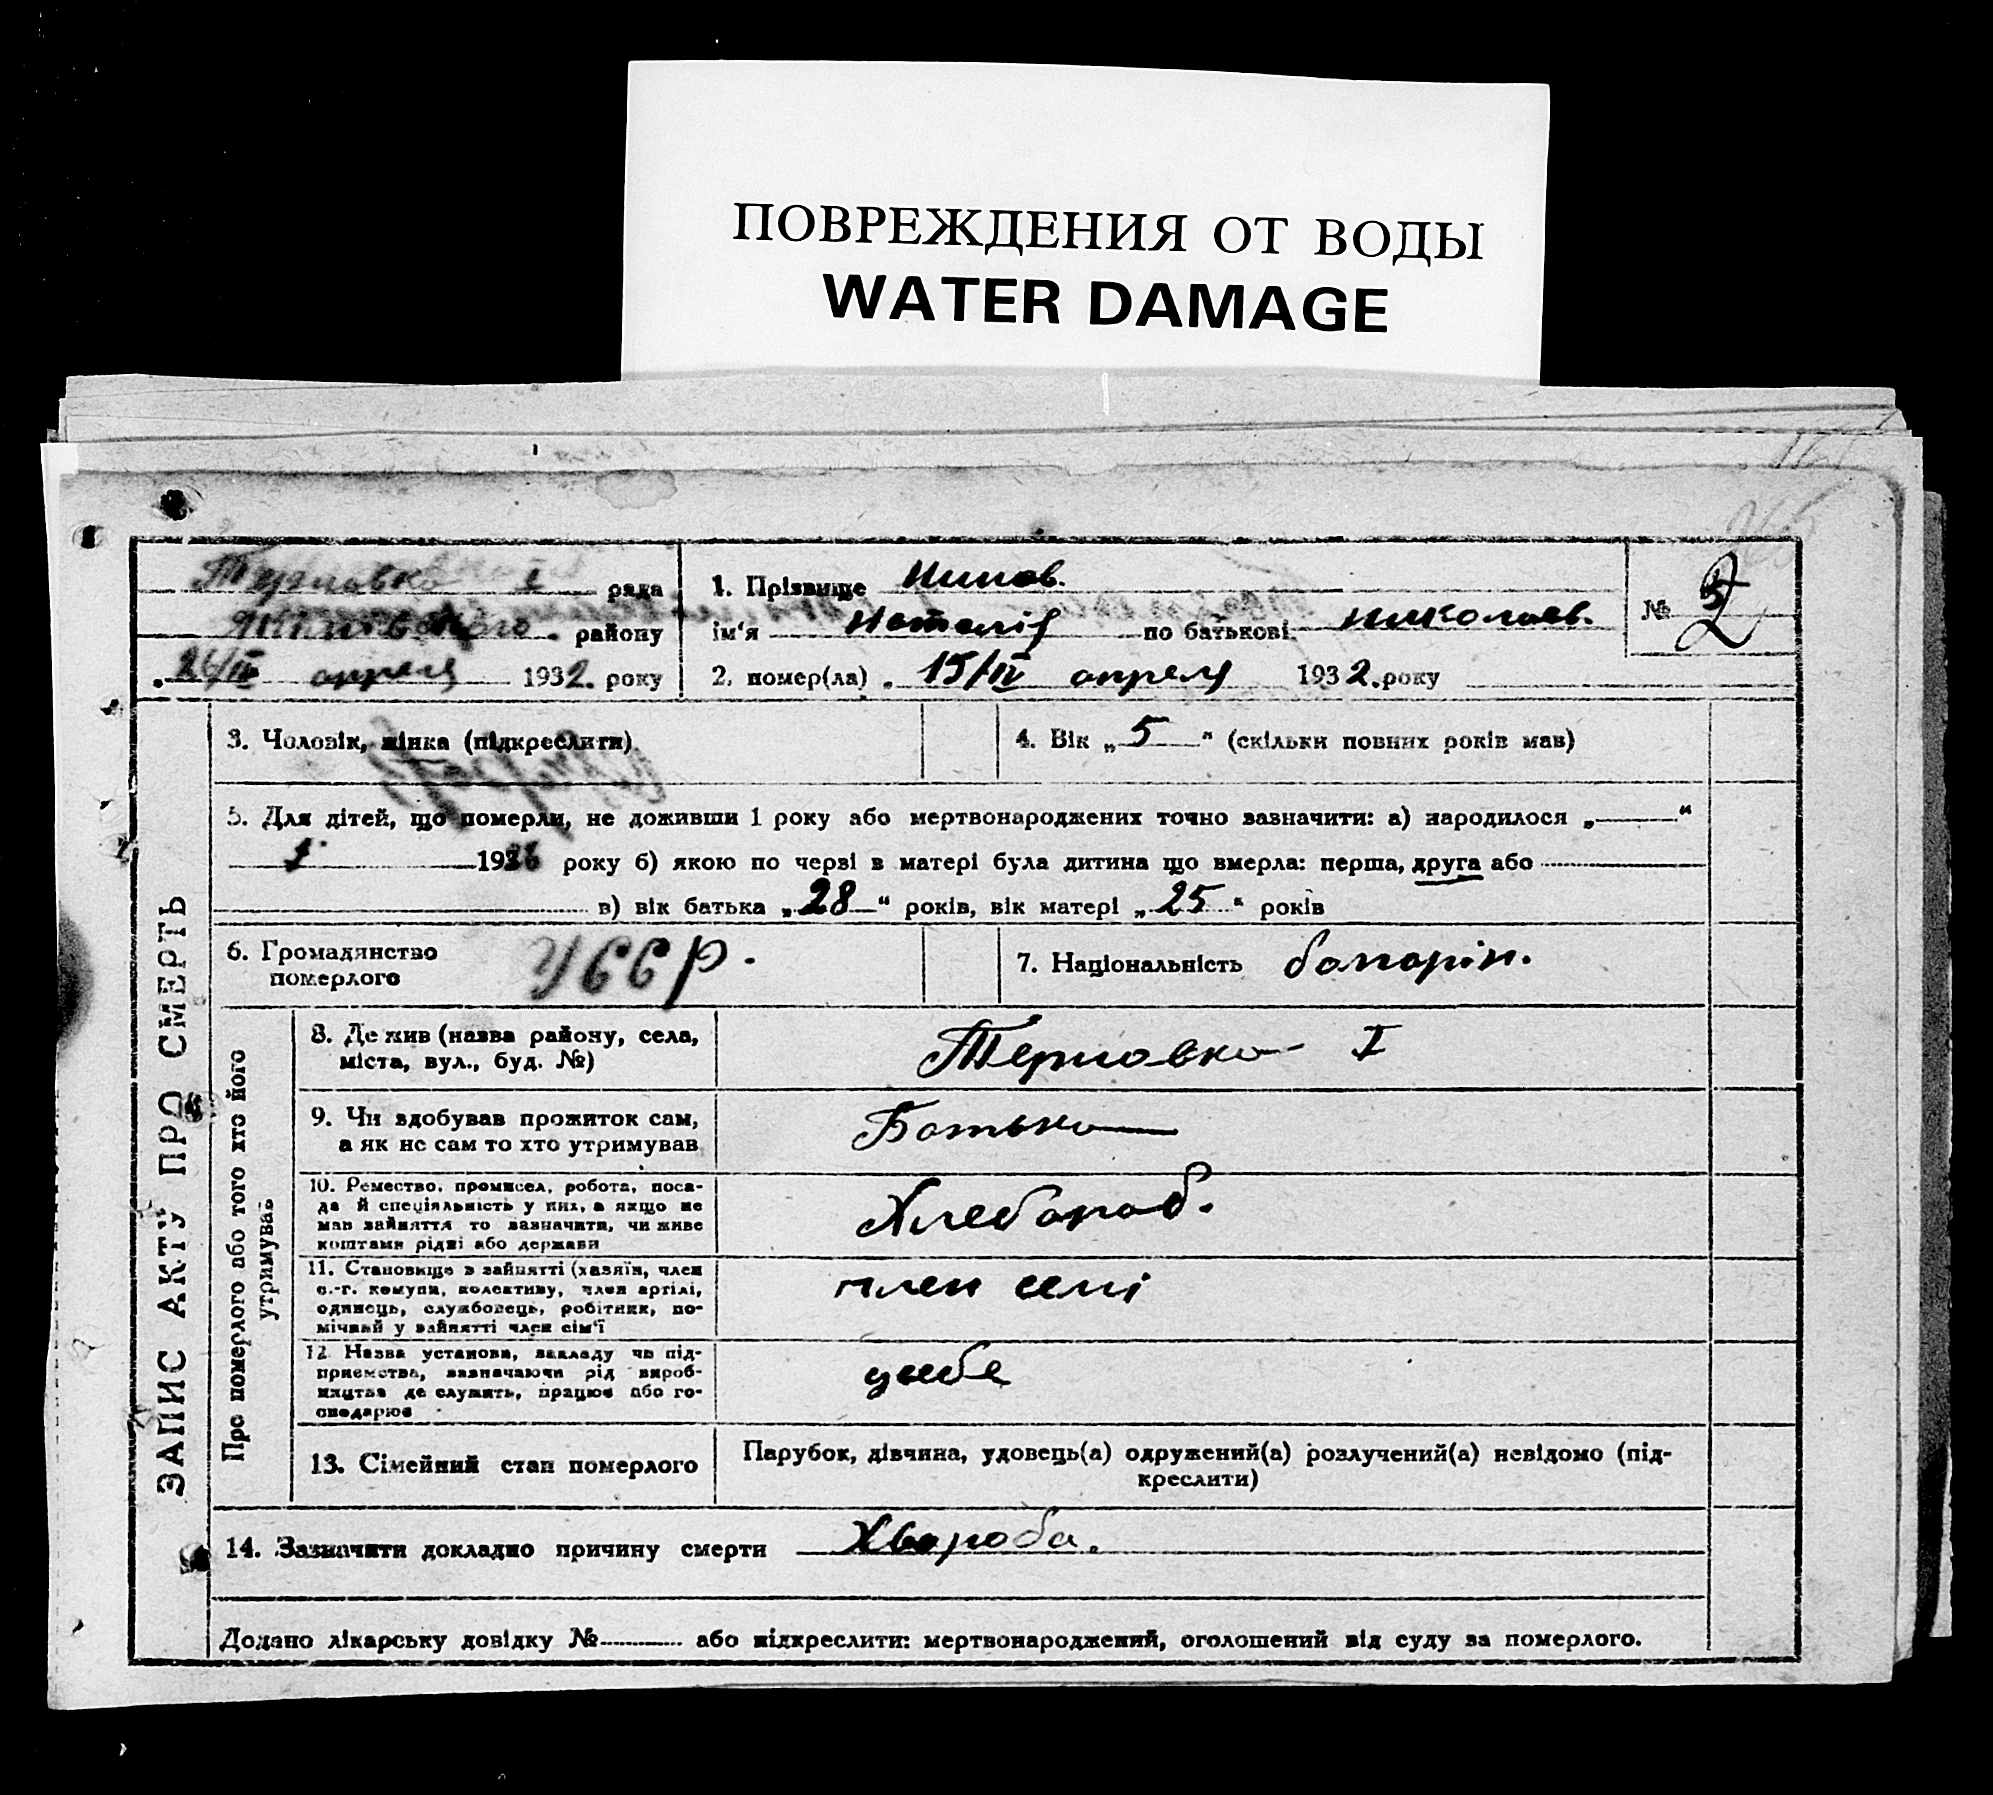 ПОВРЕЖДЕНИЯ ОТ ВОДЫ
WATER DAMAGE
Терновка I рада
району
26/IV апреля 1932. року
1. Прізвище
ім'я Наталія по батькові Николаев.
2. помер(ла) 15/IV апреля 1932. року
№ 2
ЗАПИС АКТУ ПРО СМЕРТЬ
3. Чоловік, жінка (підкреслити)
4. Вік „5“ (скільки повних років мав)
5. Для дітей, що померли, не доживши 1 року або мертвонароджених точно зазначити: а) народилося „ “
19 року б) якою по черві в матері була дитина що вмерла: перша, друга або
в) вік батька „28“ років, вік матері „25“ років
6. Громадянство
померлого УССР.
7. Національність
Про померлого або того хто його
утримував
8. Де жив (назва району, села,
міста, вул., буд. №)
Терновка I
9. Чи здобував прожиток сам,
а як не сам то хто утримував
Батько
10. Ремество, промисел, робота, поса-
да й спеціяльність у них, а якщо не
мав зайняття то зазначити, чи живе
коштами рідні або держави
Хлебороб.
11. Становище в зайнятті (хазяїн, член
с.-г. комуни, колективу, член артілі,
одинець, службовець, робітник, по-
мічний у зайнятті член сім'ї
член семі
12 Назва установи, закладу чи під-
приємства, зазначаючи рід вироб-
ництва де служить, працює або го-
сподарює
13. Сімейний стан померлого
Парубок, дівчина, удовець(а) одружений(а) розлучений(а) невідомо (під-
креслити)
14. Зазначити докладно причину смерти Хвороба.
Додано лікарську довідку № або підкреслити: мертвонароджений, оголошений від суду за померлого.